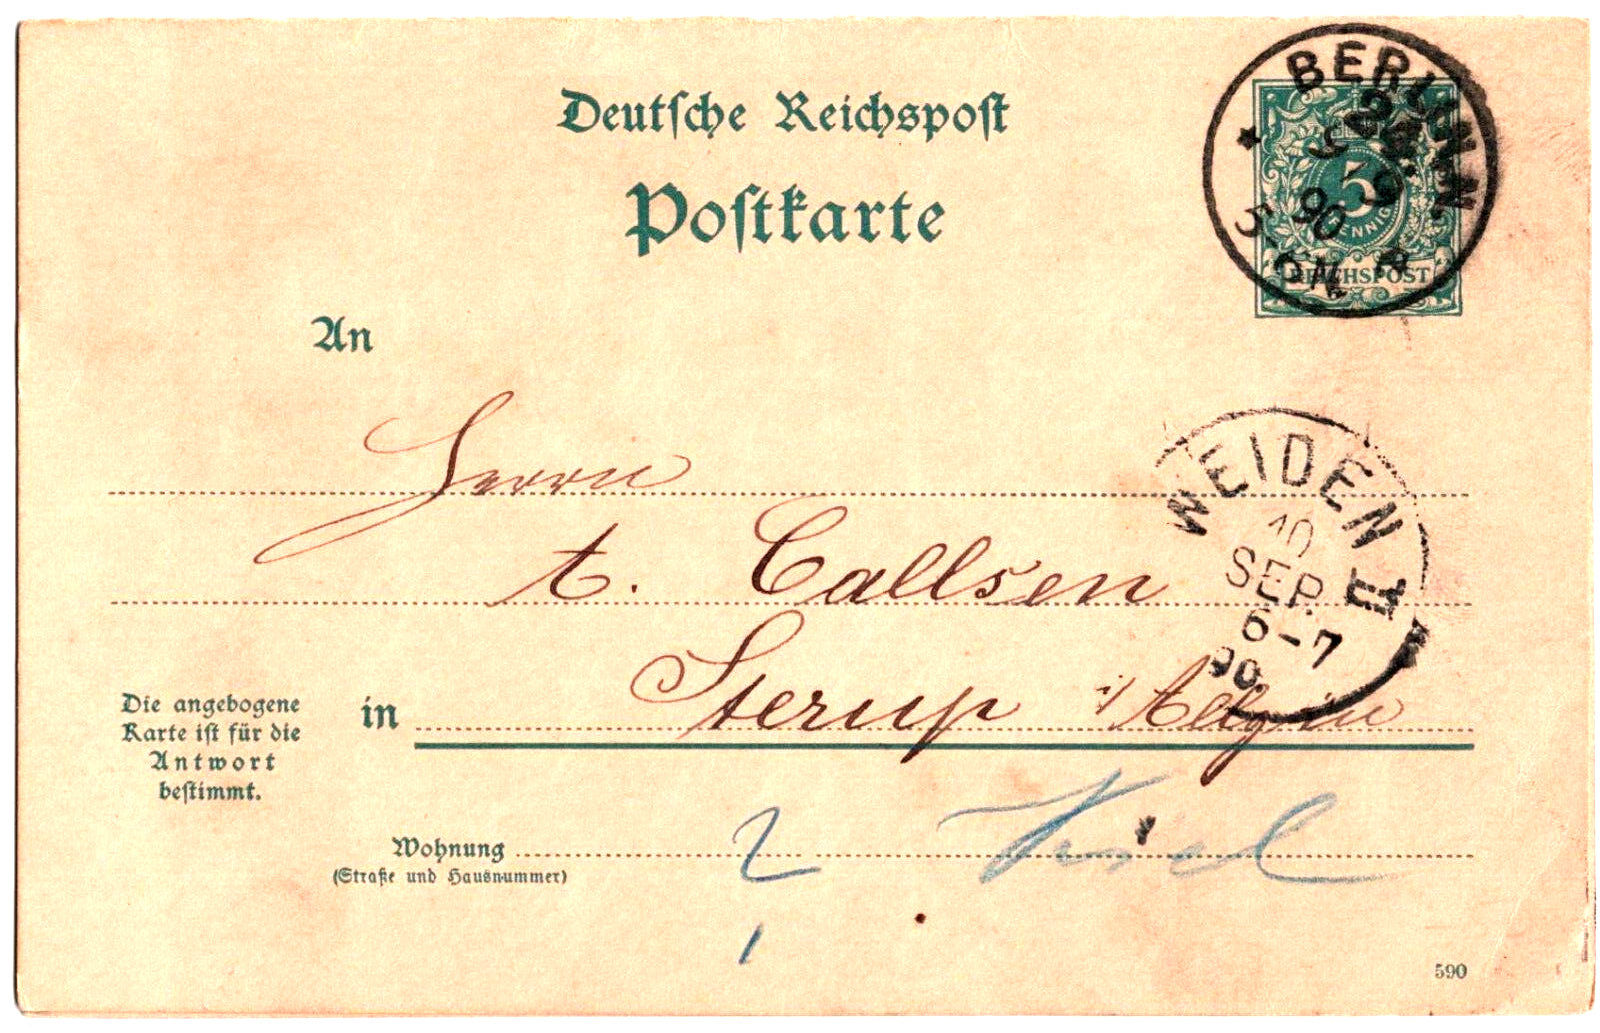 Deutsche Reichspost
Postkarte
BERLIN N.
24.
9
90
5-6N.
5
PFENNIG
REICHSPOST
An
Herrn
A. Callsen
WEIDEN II
10
SEP.
6-7
90.
in Sterup i/
Die angebogene
Karte ist für die
Antwort
bestimmt.
Wohnung
(Straße und Hausnummer)
2
1
Kiel
590